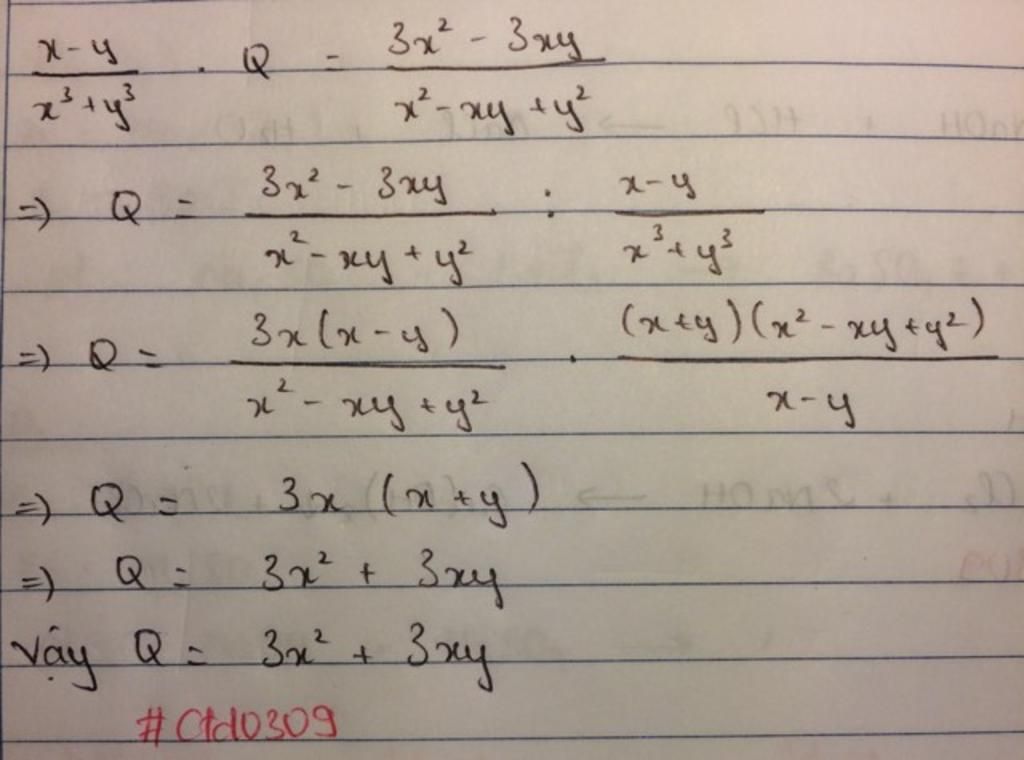 x-y / x³+y³ . Q = 3x² - 3xy / x² - xy + y²
=> Q = 3x² - 3xy / x² - xy + y² : x-y / x³+y³
=> Q = 3x(x-y) / x² - xy + y² . (x+y)(x² - xy + y²) / x-y
=> Q = 3x (x+y)
=> Q = 3x² + 3xy
Vậy Q = 3x² + 3xy
#Ctd0309